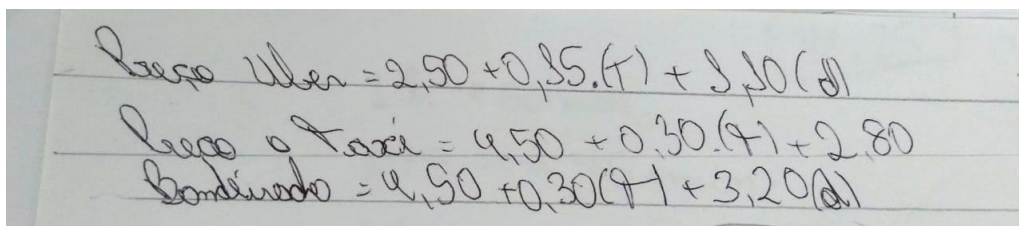 Preço Uber = 2,50 + 0,35.(t) + 1,10(d)
Preço o Taxi = 4,50 + 0,30.(t) + 2,80
Bandeirado = 4,50 + 0,30(t) + 3,20(d)